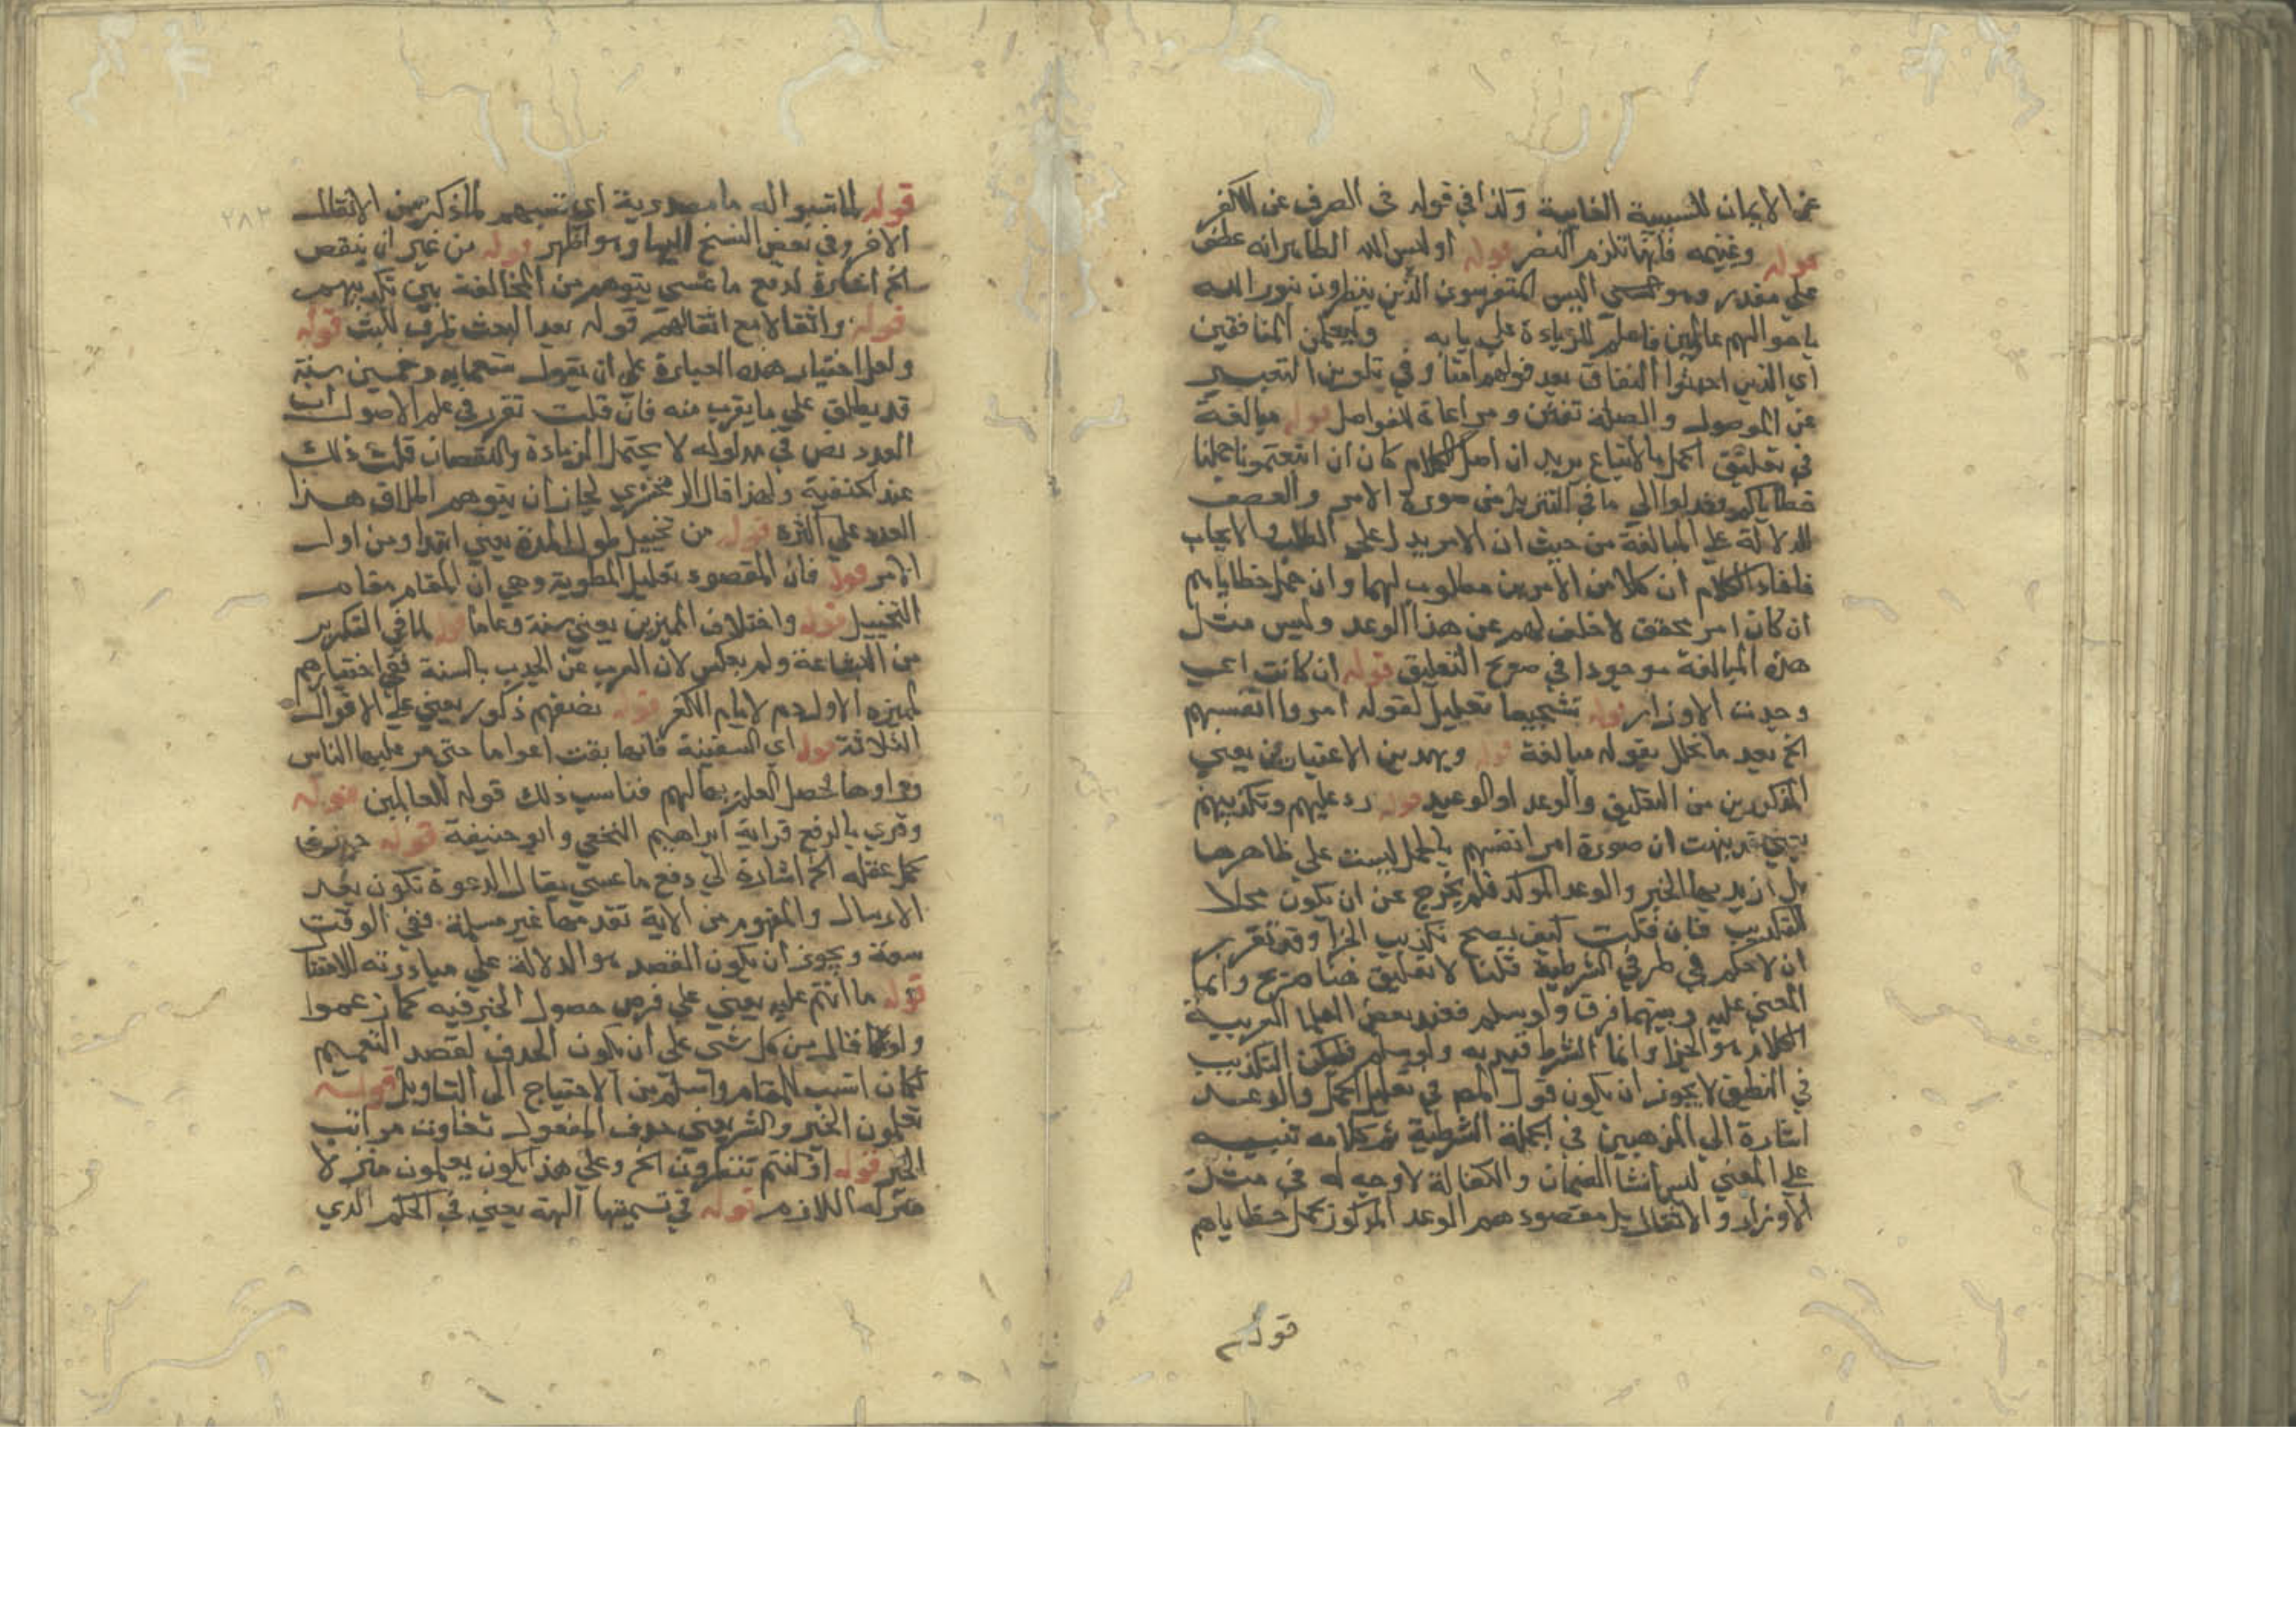 عن الايمان للسببية الغايية وكذا في قوله في الصرف عن الكفر
قوله وغنيمه فانها تلزم النصر قوله اوليس الله الظاهر انه عطف
علي مقدر وهو اليس المتفرسون الذين ينظرون بنور الله
باحوالهم عالمين فاعلم للزيادة علي بابه وليعلمن المنافقين
اي الذين احدثوا النفاق بعد قولهم امنا وفي تلوين التعبير
عن الموصول والصلة تفنن ومراعاة للفواصل قوله مبالغة
في تعليق الحمل بالاتباع يريد ان اصل الكلام كان ان اتبعتمونا حملنا
خطاياكم وعدلوا الي ما في التنزيل من صورة الامر والعطف
للدلالة علي المبالغة من حيث ان الامر يدل علي الطلب والايجاب
فافاد الكلام ان كلا من الامرين مطلوب لهما وان حمل خطاياهم
ان كان امر محقق لا خلف لهم عن هذا الوعد وليس مثل
هذه المبالغة موجودا في صريح التعليق قوله ان كانت اعي
وجدت الاوزار قوله تشجيعا تعليل لقوله امروا انفسهم
الخ بعد ما تحلل بقوله مبالغة قوله وبهذين الاعتبارين يعني
المذكورين من التعليق والوعد او الوعيد قوله رد عليهم وتكذيبهم
يعني قد نبهت ان صورة امر انفسهم بالحمل ليست علي ظاهرها
بل اريد بها الخبر والوعد الموكد فلم يخرج عن ان يكون محلا
للتكذيب فان قلت كيف يصح تكذيب الجزا وقد تقرر
ان لا حكم في طرفي الشرطية قلنا لا تعليق هنا صريح وانما
المعني عليه وبينهما فرق ولو سلم فعند بعض العلما العربية
الكلام هو الجزا وانما الشرط قيد به ولو سلم فليكن التكذيب
في التعليق لا يجوز ان يكون قول المص في تعليل الحمل والوعد
اشارة الي المذهبين في الجملة الشرطية ثم كلامه تنبيه
علي المعني ليس انشا الضمان والكفالة لا وجه له في مثل
الاوزار والاثقال بل مقصودهم الوعد المركوز بحمل خطاياهم
قوله
٢٨٣
قوله لما تسببوا له ما مصدرية اي تسببهم لما ذكر من الاثقال
الاخر وفي بعض النسخ اليها وهو اظهر قوله من غير ان ينقص
الخ اشارة لدفع ما عسي يتوهم من المخالفة بين تكذيبهم
قوله واثقالا مع اثقالهم قوله بعد البعث ظرف للبث قوله
ولعل اختيار هذه العبارة علي ان يقول تسعمايه وخمسين سنة
قد يطلق علي ما يقرب منه فان قلت تقرر في علم الاصول ان
العدد نص في مدلوله لا يحتمل الزيادة والنقصان قلت ذلك
عند الحنفية ولهذا قال الزمخشري لجاز ان يتوهم اطلاق هذا
العدد علي اكثره قوله من تخييل طول المدة يعني ابتدا ومن اول
الامر قوله فان المقصود تعليل المطوية وهي ان المقام مقام
التخييل قوله واختلاف المميزين يعني سنة وعاما قوله لما في التكرير
من البشاعة ولم يعكس لان العرب عن الجدب بالسنة ففي اختيارهم
لميزه الاول ذم لايام الكفر قوله نصفهم ذكور يعني علي الاقوال
الثلاثة قوله اي السفينة فانها بقت اعواما حتي مر عليها الناس
وراوها فحصل العلم بها لهم فناسب ذلك قوله للعالمين قوله
وقري بالرفع قراية ابراهيم النخعي وابو حنيفة قوله حين
كمل عقله الخ اشارة الي دفع ما عسي يقال الدعوة تكون بعد
الارسال والمفهوم من الاية تقدمها غير مسلمة ففي الوقت
سعة ويجوز ان يكون القصد هو الدلالة علي مبادرته للامتثا
قوله ما انتم عليه يعني علي فرض حصول الخير فيه كما زعموا
ولو قال من كل شي علي ان يكون الحذف لقصد التعميم
لكان انسب للمقام واسلم من الاحتياج الي التاويل قوله
تعلمون الخير والشر يعني حذف المفعول تفاوت مراتب
الخير قوله او كنتم تنظرون الخ وعلي هذا يكون يعلمون منزلا
منزله اللازم قوله في تسميتها الهة يعني في الحكم الذي